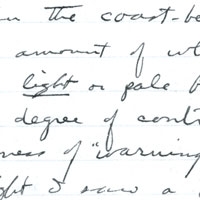 the coast-be
amount of wh
light or pale b
degree of cont
ness of "warning
ght I saw a